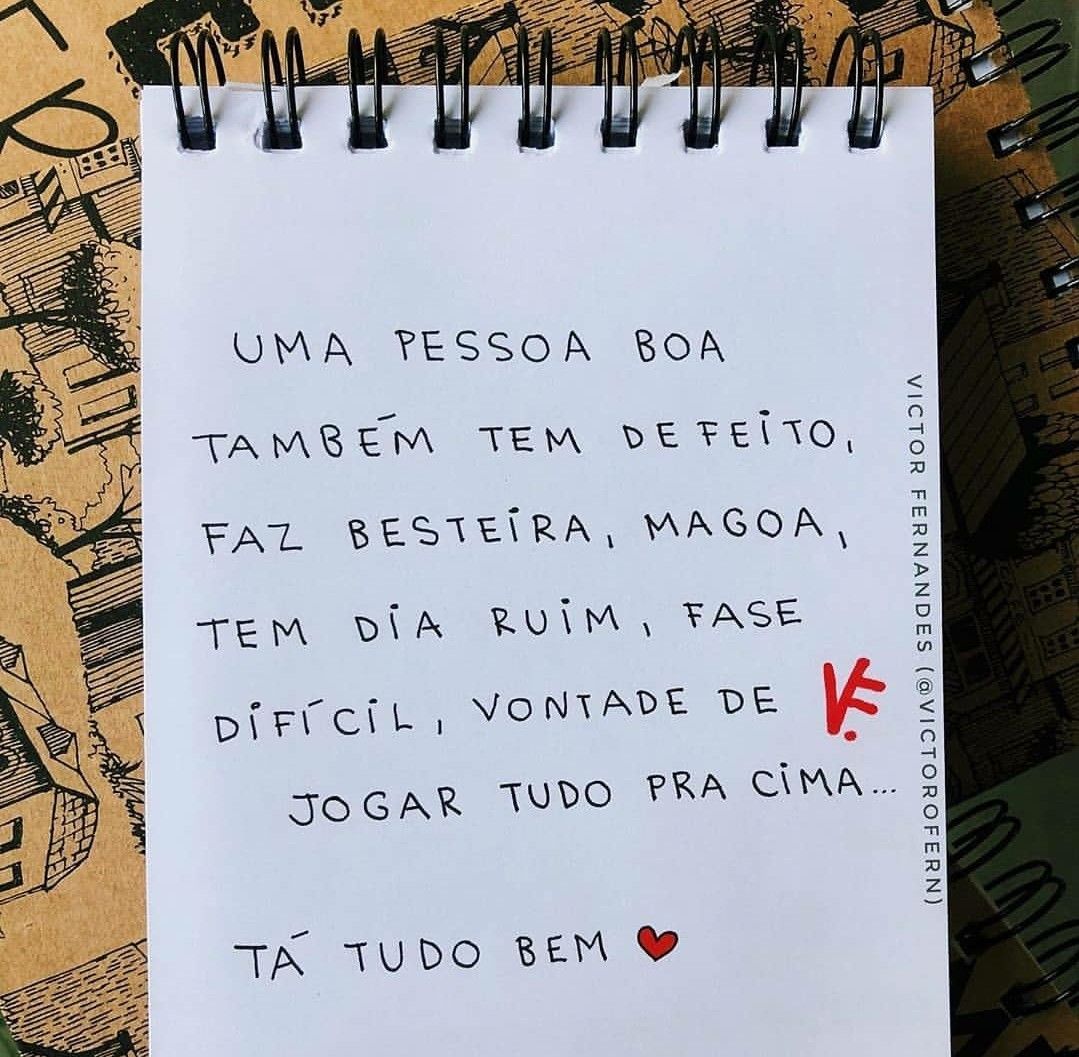 UMA PESSOA BOA
TAMBÉM TEM DEFEITO,
FAZ BESTEIRA, MAGOA,
TEM DIA RUIM, FASE
DIFÍCIL, VONTADE DE
JOGAR TUDO PRA CIMA...
TÁ TUDO BEM ❤
VF.
VICTOR FERNANDES (@VICTOROFERN)